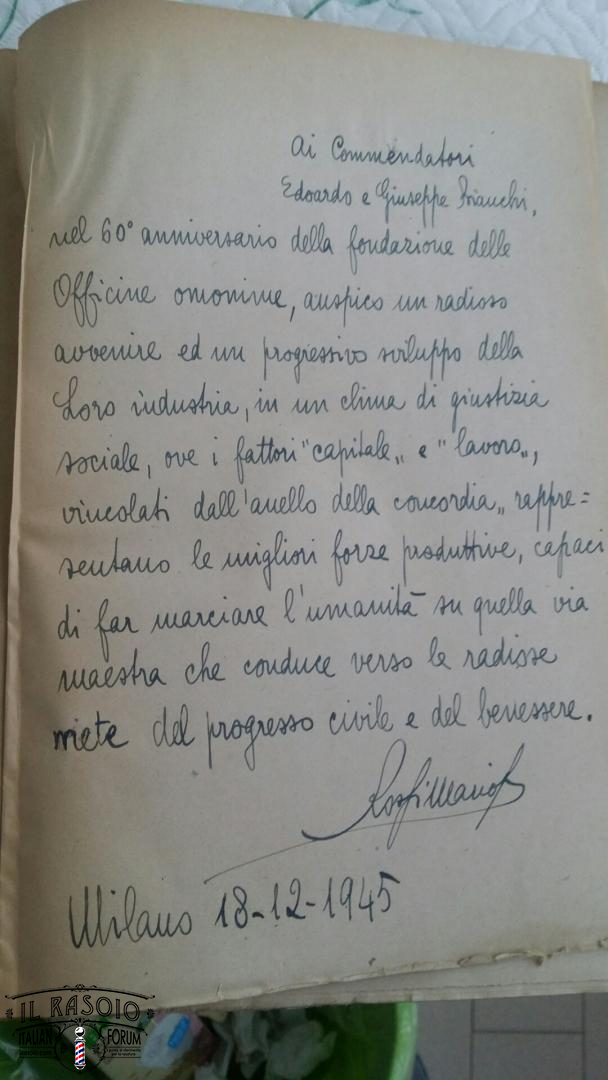 Ai Commendatori
Edoardo e Giuseppe Bianchi,
nel 60° anniversario della fondazione delle
Officine omonime, auspico un radioso
avvenire ed un progressivo sviluppo della
Loro industria, in un clima di giustizia
sociale, ove i fattori "capitale„ e "lavoro„,
vincolati dall'anello della concordia„ rappre=
sentano le migliori forze produttive, capaci
di far marciare l'umanità su quella via
maestra che conduce verso le radiose
mete del progresso civile e del benessere.
Rossi Mario
Milano 18-12-1945
IL RASOIO
ITALIAN FORUM